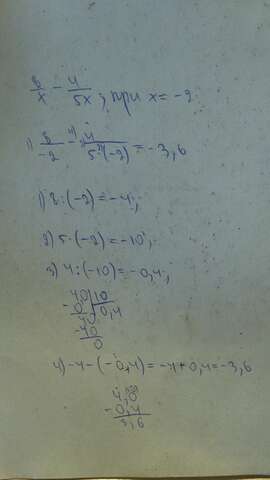 8/x - 4/5x; при x = -2
1) 8/-2 - 4/5·(-2) = -3,6
1) 8:(-2) = -4;
2) 5·(-2) = -10;
3) 4:(-10) = -0,4;
40 | 10
- 0 | 0,4
40
- 40
0
4) -4-(-0,4) = -4+0,4 = -3,6
4,0
- 0,4
3,6